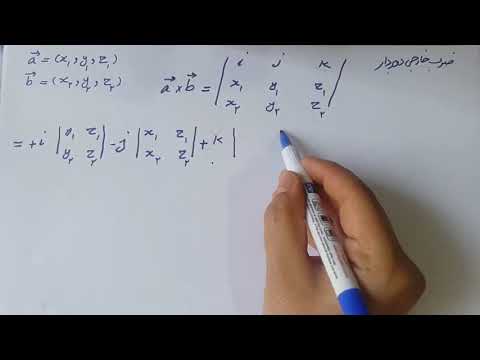 ضرب خارجی دو بردار
a⃗ = (x₁, y₁, z₁)
b⃗ = (x₂, y₂, z₂)
a⃗ × b⃗ = | i j k |
| x₁ y₁ z₁ |
| x₂ y₂ z₂ |
= + i | y₁ z₁ | - j | x₁ z₁ | + k |
| y₂ z₂ | | x₂ z₂ |